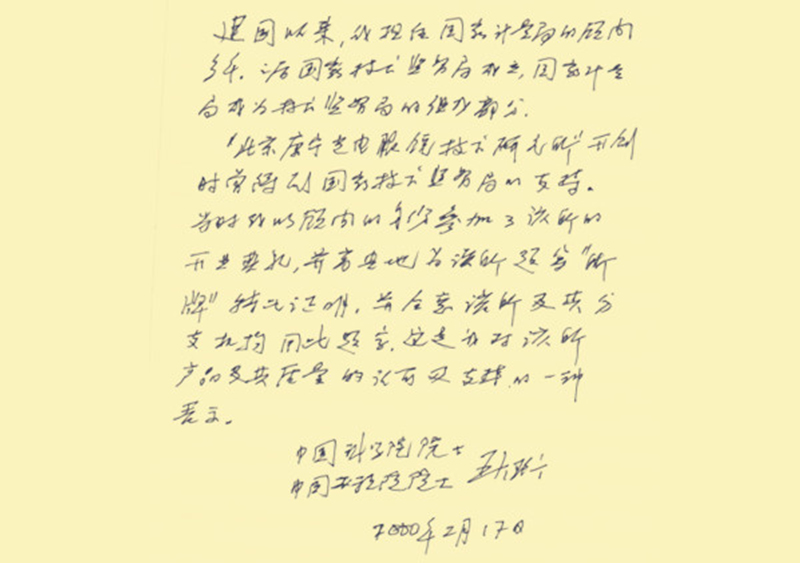 建国以来，我担任国家计量局的顾问
多年。之后国家技术监督局成立，国家计量
局成为技术监督局的组成部分。
"北京康宁光电眼镜技术研究所"开创
时曾得到国家技术监督局的支持。
当时我以顾问的身份参加了该所的
开业典礼，并高兴地为该所题写"所
牌"特此证明。并同意该所及其分
支机构用此题字。这是我对该所
产品及其质量的认可及支持的一种
表示。
中国科学院院士
中国工程院院士 王大珩
2000年2月17日